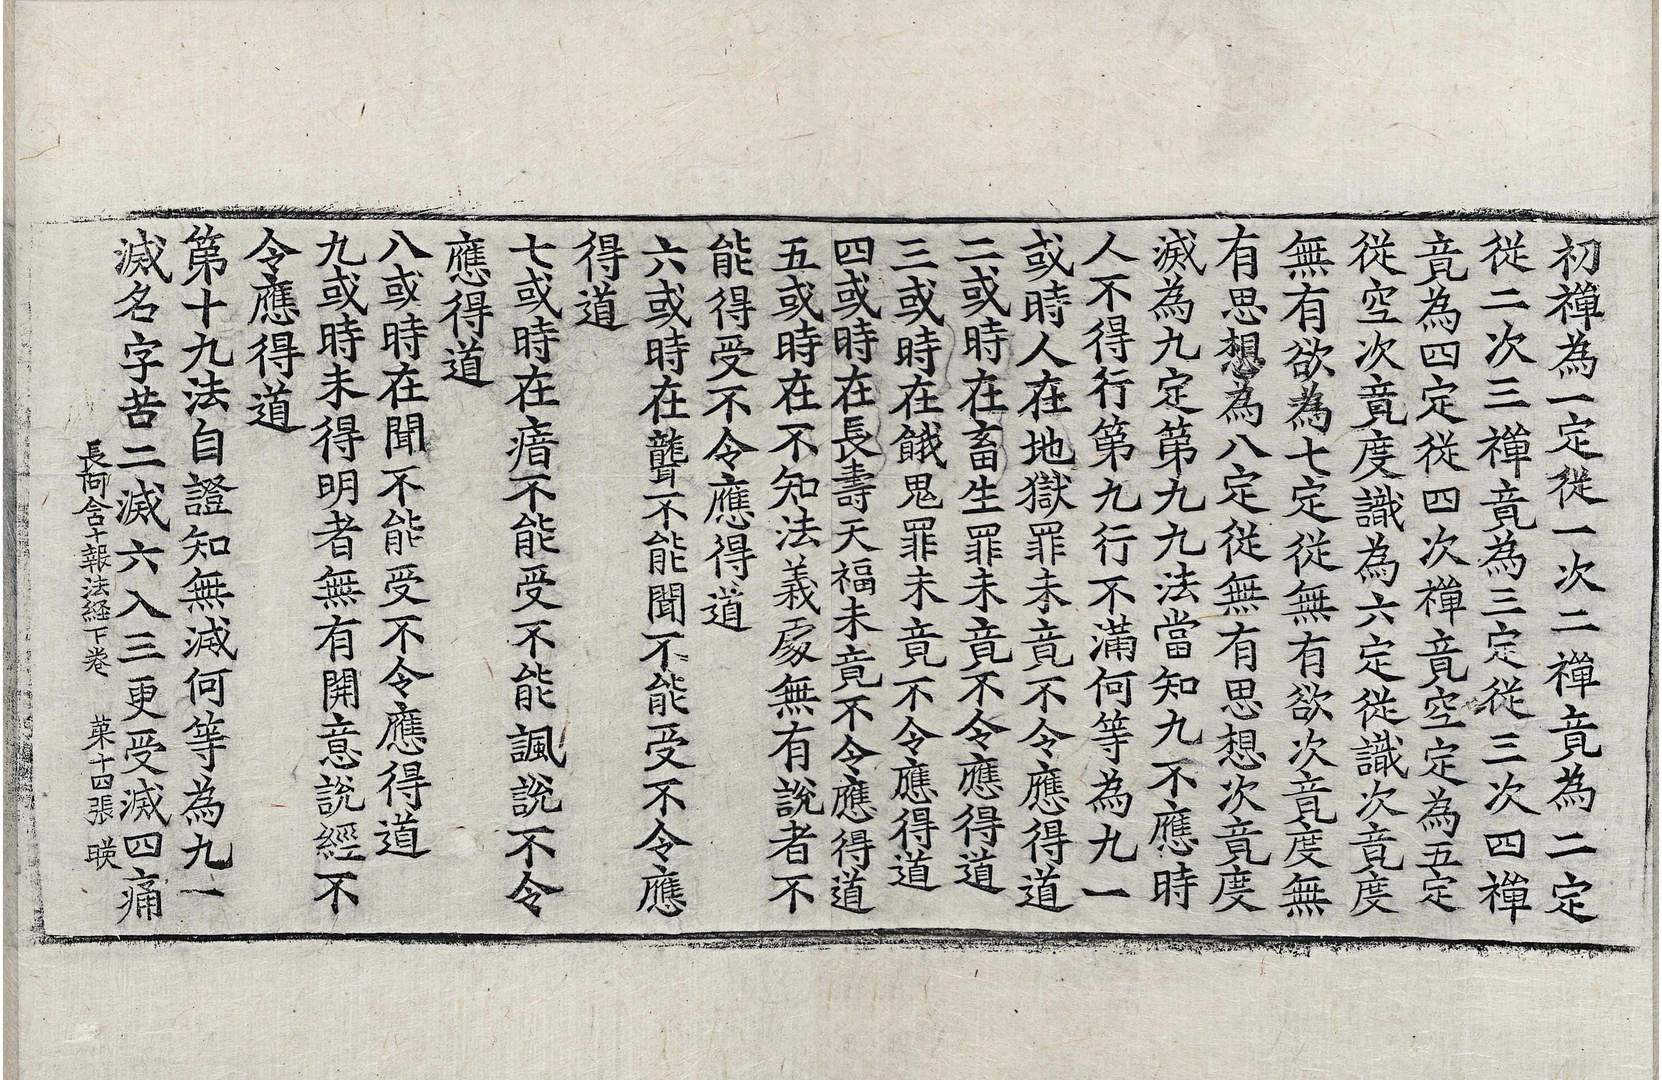 初禪為一定從一次二禪竟為二定
從二次三禪竟為三定從三次四禪
竟為四定從四次禪竟空定為五定
從空次竟度識為六定從識次竟度
無有欲為七定從無有欲次竟度無
有思想為八定從無有思想次竟度
滅為九定第九九法當知九不應時
人不得行第九行不滿何等為九一
或時人在地獄罪未竟不令應得道
二或時在畜生罪未竟不令應得道
三或時在餓鬼罪未竟不令應得道
四或時在長壽天福未竟不令應得道
五或時在不知法義處無有說者不
能得受不令應得道
六或時在聾不能聞不能受不令應
得道
七或時在瘖不能受不能諷說不令
應得道
八或時在聞不能受不令應得道
九或時未得明者無有開意說經不
令應得道
第十九法自證知無減何等為九一
滅名字苦二滅六入三更受滅四痛
長阿含十報法経下卷 菓十四張 暎